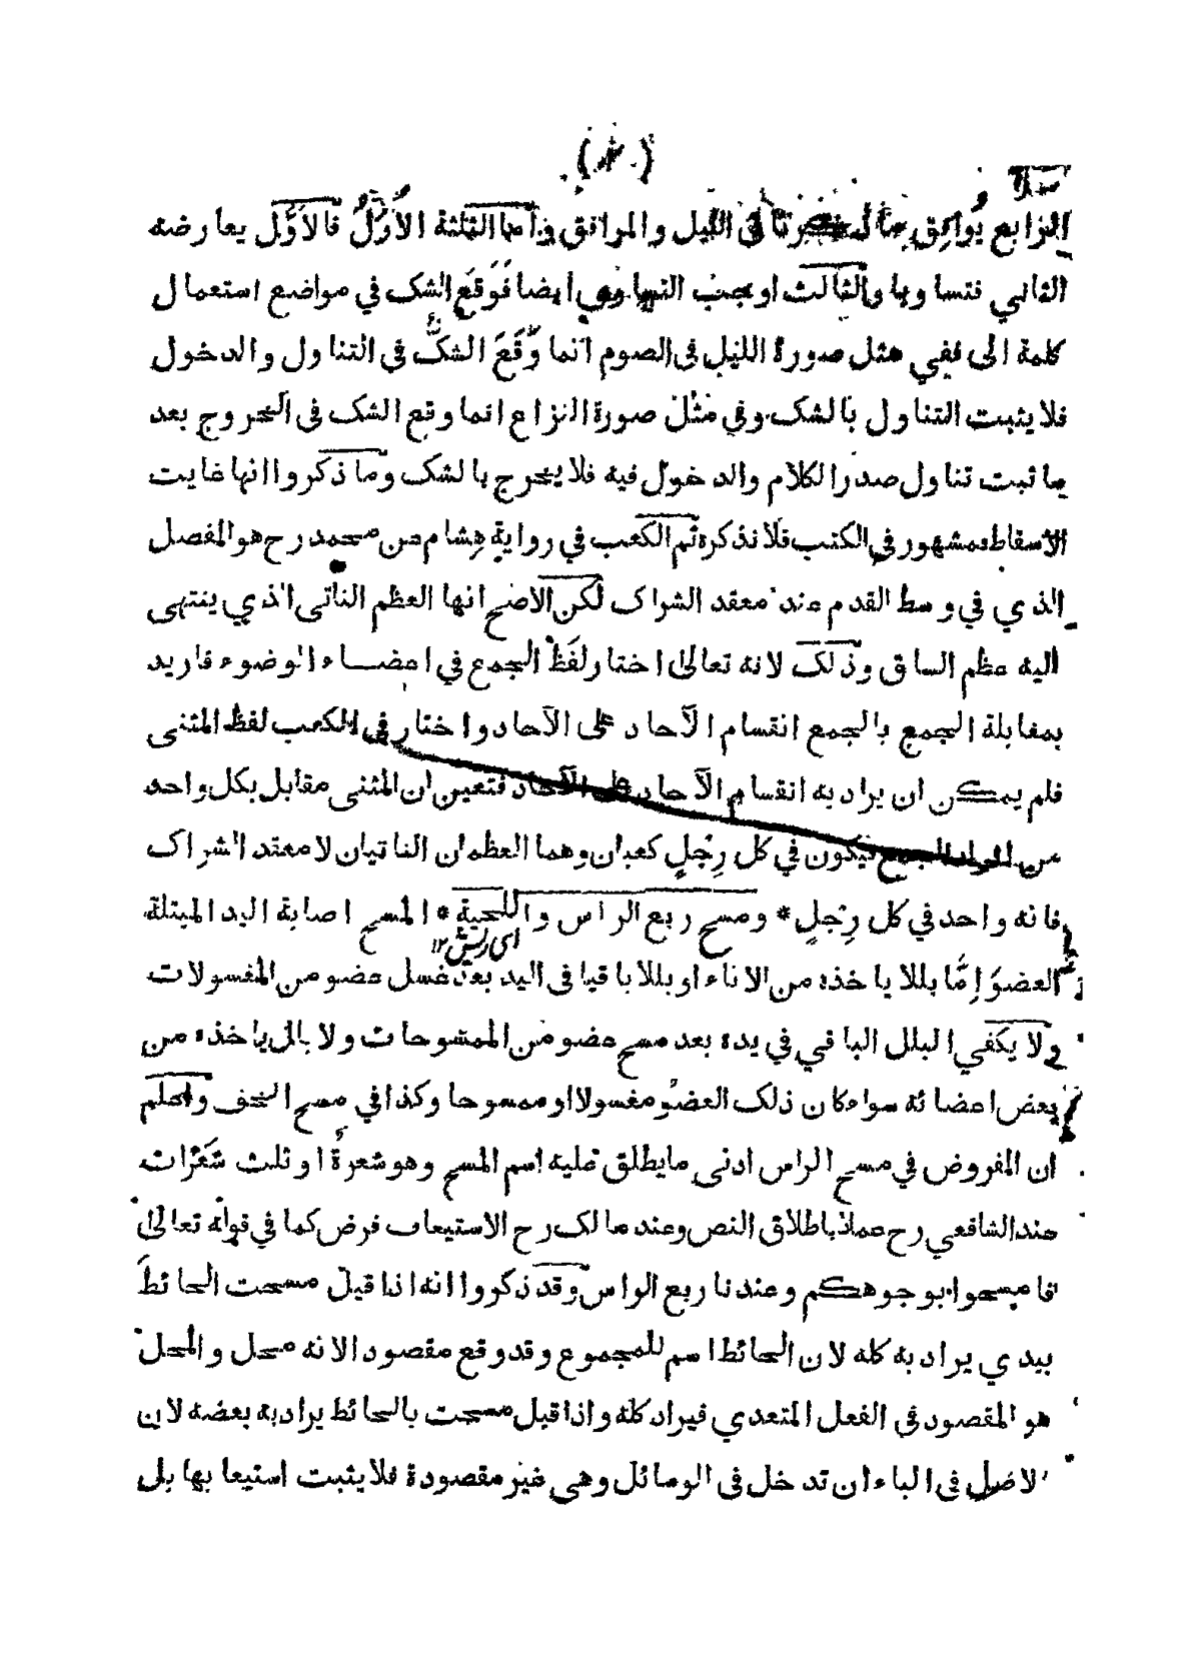 الرابع يوافق ما ذكرنا فى الليل والمرافق فاما الثلثة الاُوَلُ فالاَوَّل يعارضه
الثانى فتساويا والثالث اوجب التساوى ايضا فَوَقَعَ الشك في مواضع استعمال
كلمة الى ففي مثل صورة الليل فى الصوم انما وَقَعَ الشكُّ فى التناول والدخول
فلا يثبت التناول بالشك وفي مثل صورة النزاع انما وقع الشك فى الخروج بعد
ما ثبت تناول صدر الكلام والدخول فيه فلا يخرج بالشك وما ذكروا انها غاية
الاسقاط فمشهور في الكتب فلا نذكره ثم الكعب في رواية هِشام عن محمد رح هو المفصل
الذي في وسط القدم عند معقد الشراك لكن الاصح انها العظم الناتى الذي ينتهى
اليه عظم الساق وذلك لانه تعالى اختار لفظ الجمع في اعضاء الوضوء فاريد
بمقابلة الجمع بالجمع انقسام الآحاد على الآحاد واختار في الكعب لفظ المثنى
فلم يمكن ان يراد به انقسام الآحاد على الآحاد فتعين ان المثنى مقابل بكل واحد
من افراد الجمع فيكون في كل رِجْلٍ كعبان وهما العظمان الناتيان لا معقد الشراك
فانه واحد في كل رِجْلٍ * ومسح ربع الراس واللحية * المسح اصابة اليد المبتلة
اى ريش ١٢
العضوَ اِمَّا بللا ياخذه من الاناء او بللا باقيا فى اليد بعد غسل عضو من المغسولات
ولا يكفي البلل الباقي في يده بعد مسح عضو من الممسوحات ولا بلل ياخذه من
بعض اعضائه سواء كان ذلك العضو مغسولا او ممسوحا وكذا في مسح الخف واعلم
ان المفروض في مسح الراس ادنى ما يطلق عليه اسم المسح وهو شعرةٌ او ثلث شَعَرات
عند الشافعي رح عملا باطلاق النص وعند مالك رح الاستيعاب فرض كما في قوله تعالى
فامسحوا بوجوهكم وعندنا ربع الراس وقد ذكروا انه اذا قيل مسحت الحائطَ
بيدي يراد به كله لان الحائط اسم للمجموع وقد وقع مقصودا لانه محل والمحل
هو المقصود في الفعل المتعدي فيراد كله واذا قيل مسحت بالحائط يراد به بعضه لان
الاصل فى الباء ان تدخل فى الوسائل وهى غير مقصودة فلا يثبت استيعابها بل